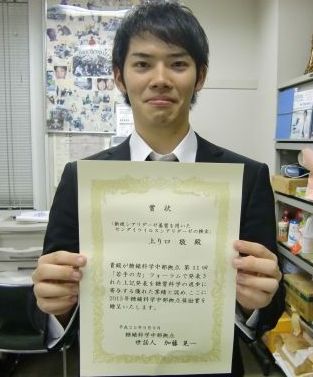 賞状
（新規シアリダーゼ基質を用いた
センダイウイルスシアリダーゼの検出）
上り口 敬 殿
貴殿が糖鎖科学中部拠点 第11回
「若手の力」フォーラムで発表さ
れた上記発表を糖質科学の進歩に
寄与する優れた業績と認め、ここに
2015年糖鎖科学中部拠点奨励賞を
贈呈いたします。
糖鎖科学中部拠点
世話人 加藤 晃一